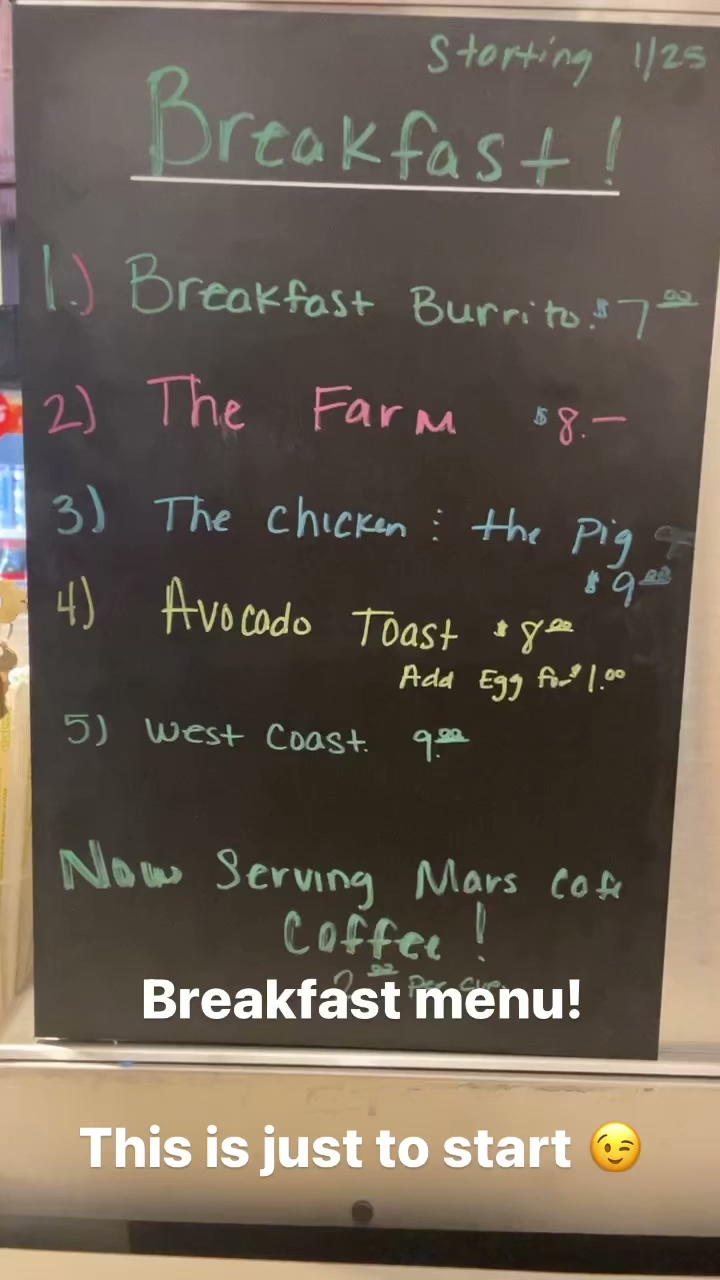 Starting 1/25
Breakfast!
1.) Breakfast Burrito. $7.00
2) The Farm $8.—
3) The Chicken : the Pig
$9.00
4) Avocado Toast $8.00
Add Egg for $1.00
5) West Coast. 9.00
Now Serving Mars Cafe
Coffee!
2.00 Per Cup
Breakfast menu!
This is just to start 😉